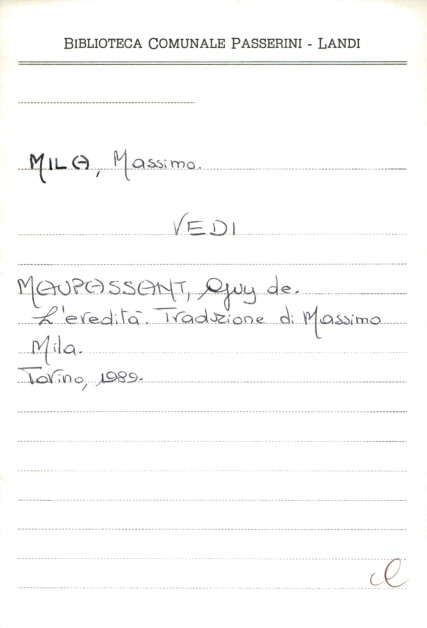 BIBLIOTECA COMUNALE PASSERINI - LANDI
MILA, Massimo.
VEDI
MAUPASSANT, Guy de.
L'eredità. Traduzione di Massimo
Mila.
Torino, 1989.